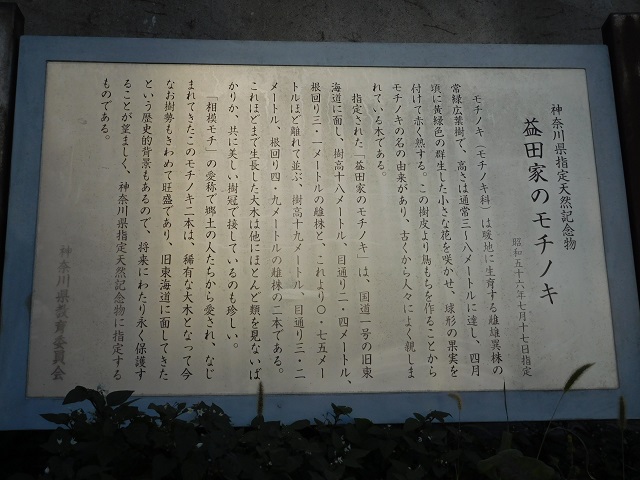 神奈川県指定天然記念物
益田家のモチノキ
昭和五十六年七月十七日指定
モチノキ（モチノキ科）は暖地に生育する雌雄異株の
常緑広葉樹で、高さは通常三〜八メートルに達し、四月
頃に黄緑色の群生した小さな花を咲かせ、球形の果実を
付けて赤く熟する。この樹皮より鳥もちを作ることから
モチノキの名の由来があり、古くから人々によく親しま
れている木である。
指定された「益田家のモチノキ」は、国道一号の旧東
海道に面し、樹高十八メートル、目通り二・四メートル、
根回り三・一メートルの雌株と、これより〇・七五メー
トルほど離れて並ぶ、樹高十九メートル、目通り三・二
メートル、根回り四・九メートルの雄株の二本である。
これほどまで生長した大木は他にほとんど類を見ないば
かりか、共に美しい樹冠で接しているのも珍しい。
「相模モチ」の愛称で郷土の人たちから愛され、なじ
まれてきたこのモチノキ二本は、稀有な大木となって今
なお樹勢もきわめて旺盛であり、旧東海道に面してきた
という歴史的背景もあるので、将来にわたり永く保護す
ることが望ましく、神奈川県指定天然記念物に指定する
ものである。
神奈川県教育委員会